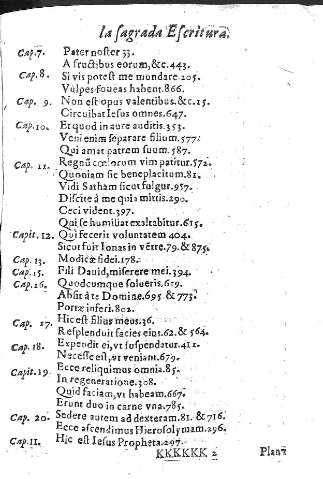 la sagrada Escritura.
Cap.7. Pater noster 33.
A fructibus eorum,&c.443.
Cap.8. Si vis potest me mundare.205.
Vulpes foueas habent.866.
Cap. 9. Non est opus valentibus.&c.15.
Circuibat Iesus omnes.647.
Cap.10. Et quod in aure auditis.353.
Veni enim separare filium.577.
Qui amat patrem suum.587.
Cap. 11. Regnũ cœlorum vim patitur.572.
Quoniam sic beneplacitum.81.
Vidi Satham sicut fulgur.957.
Discite à me quia mitis.290.
Ceci vident.397.
Qui se humiliat exaltabitur.615.
Capit.12. Qui fecerit voluntatem 404.
Sicut fuit Ionas in vẽtre.79.& 875.
Cap. 13. Modicæ fidei.178.
Cap.15. Fili Dauid, miserere mei.394.
Cap.16. Quodcumque solueris.619.
Absit à te Domine.695 & 773.
Portæ inferi.802.
Cap. 17. Hic est filius meus.36.
Resplenduit facies eius.62.& 564.
Cap.18. Expendit ei, vt suspendatur.411.
Necesse est, vt veniant.679.
Capit.19. Ecce reliquimus omnia.85.
In regeneratione.308.
Quid faciam, vt habeam.667.
Erunt duo in carne vna.785.
Cap. 20. Sedere autem ad dexteram.81.& 716.
Ecce ascendimus Hierosolymam.296.
Cap.11. Hic est Iesus Propheta.297.
KKKKKK 2 Plan